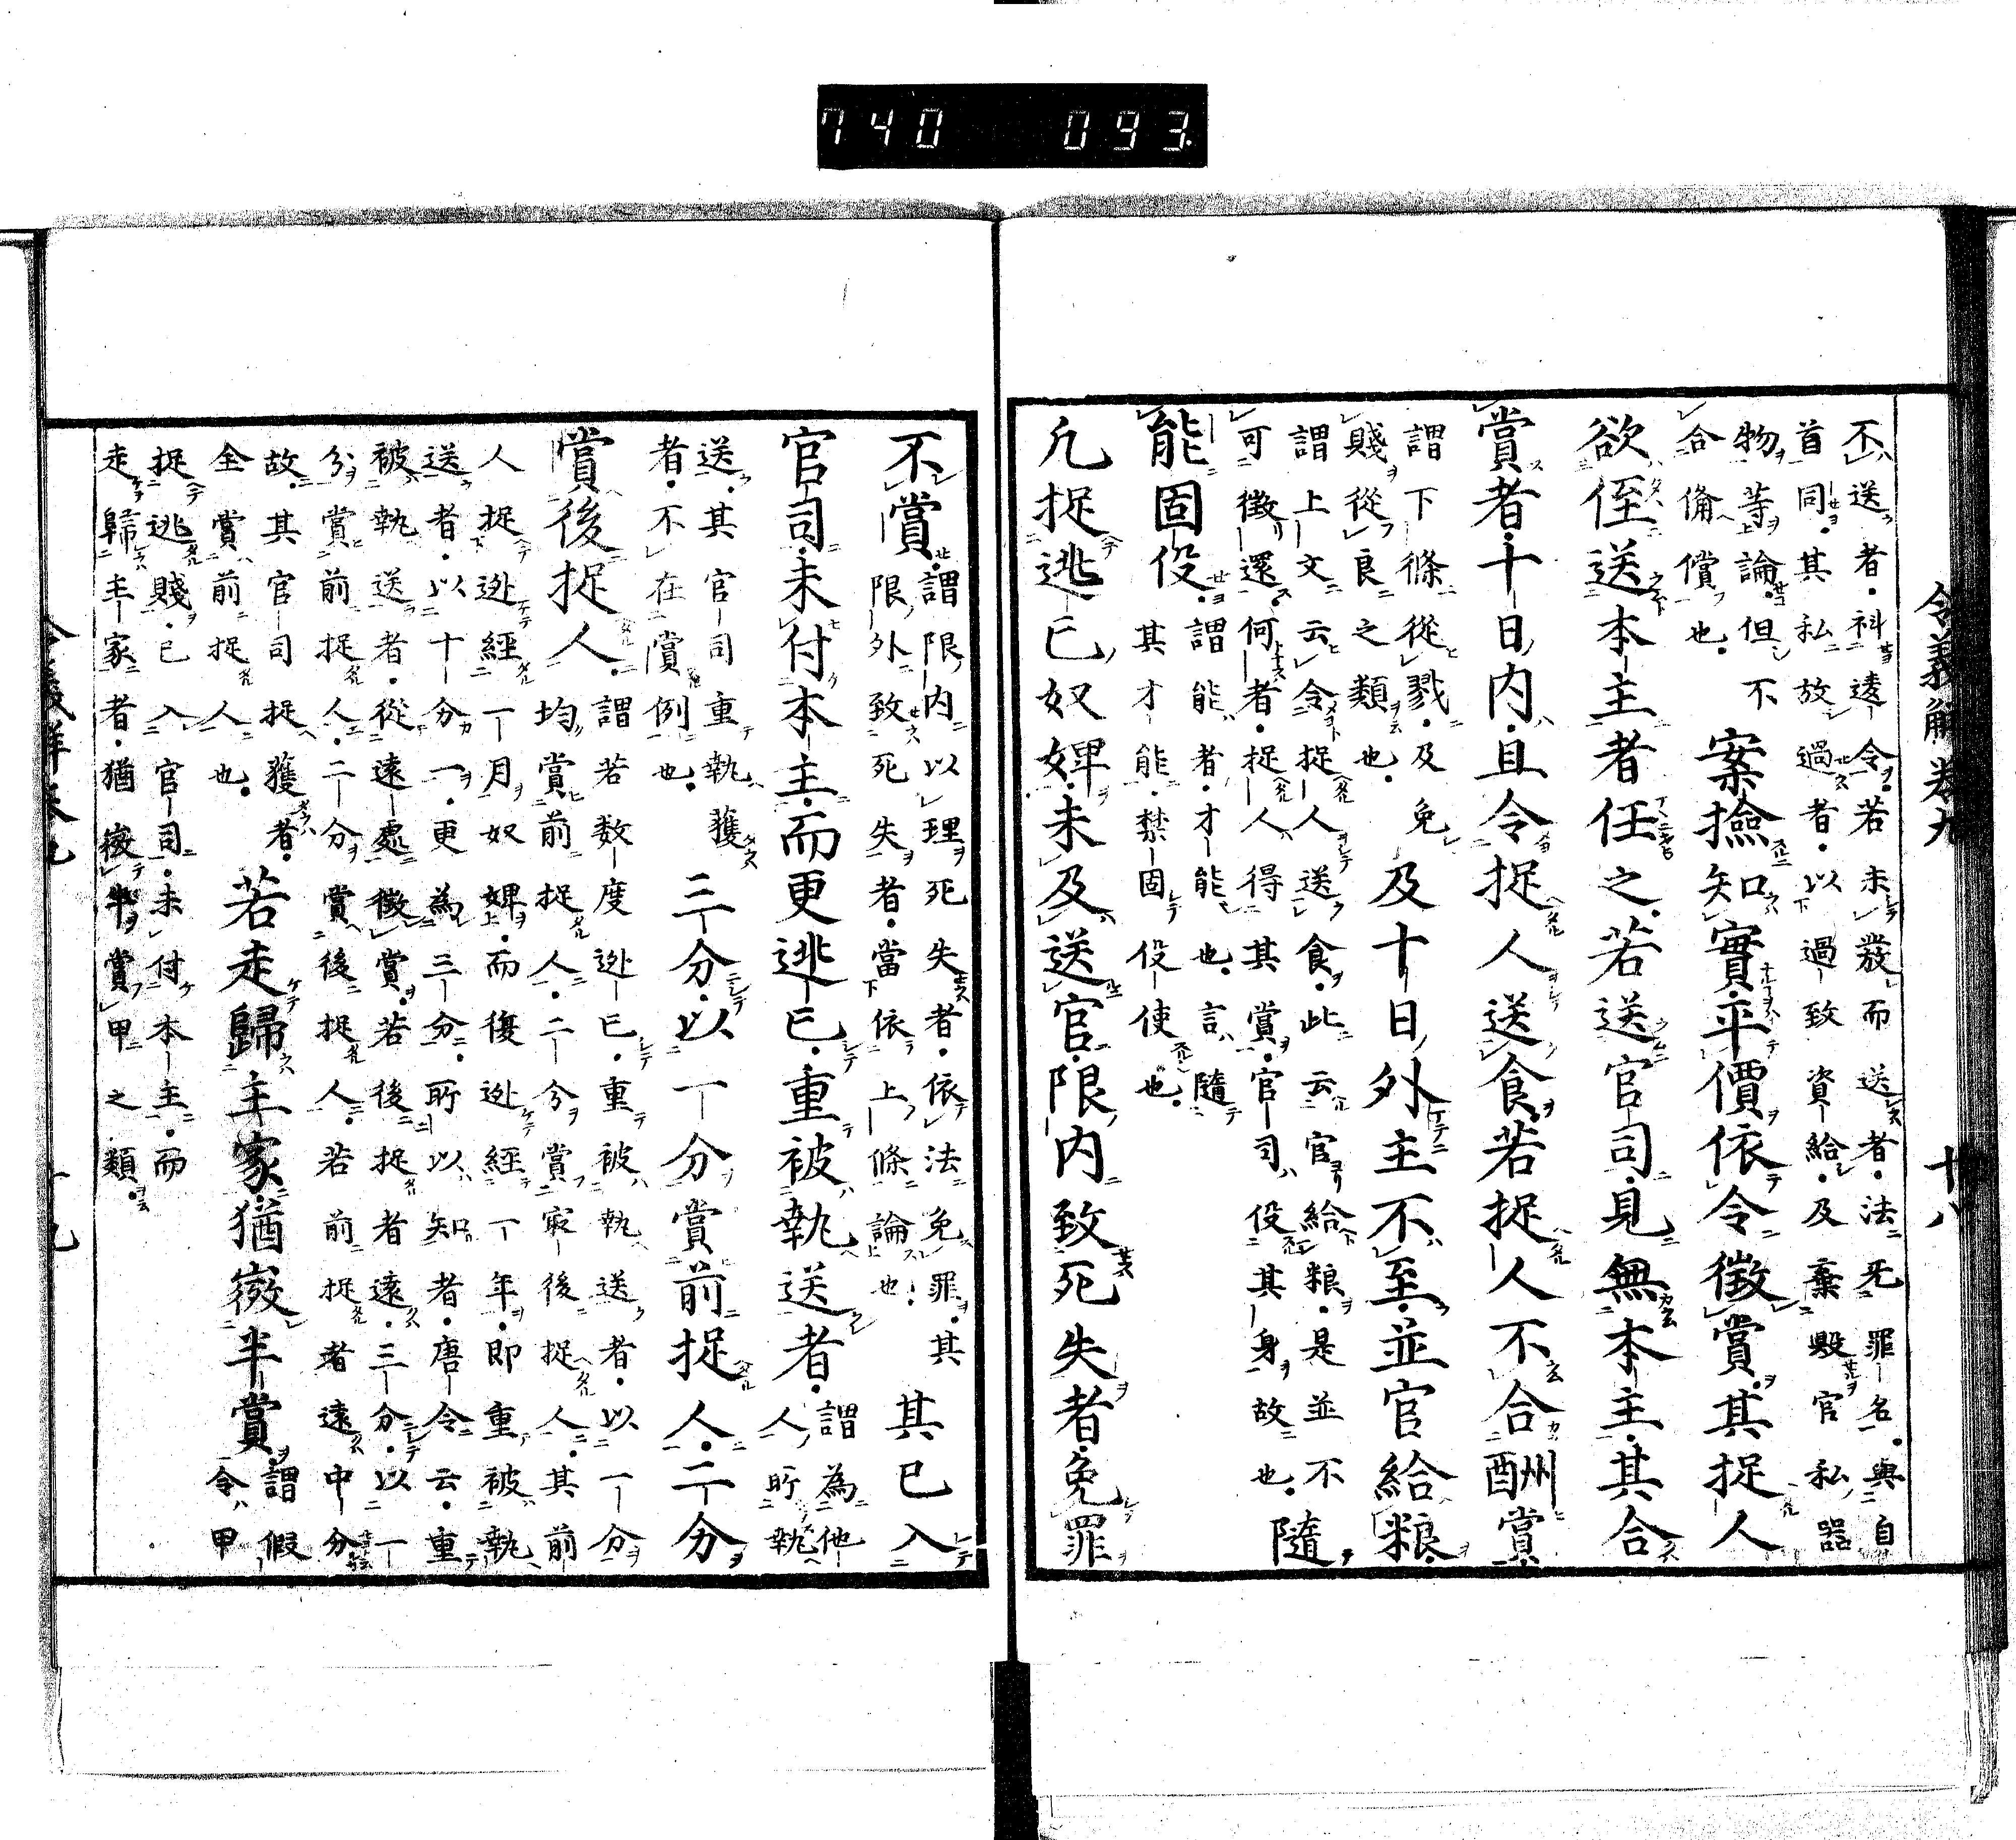 740 093
令義解卷九 十八
不送者科違令若未發而送者法无罪名與自
首同其私放過者以過致資給及棄毀官私器
物等論但不
合備償也
案撿知實平價依令徵賞其捉人
欲侄送本主者任之若送官司見無本主其合
賞者十日內且令捉人送食若捉人不合酬賞
謂下條從戮及免
賤從良之類也
及十日外主不至並官給粮
謂上文云令捉人送食此云官給粮是並不
可徵還何者捉人得其賞官司役其身故也
隨
能固役
謂能者才能也言隨
其才能禁固役使也
凡捉逃亡奴婢未及送官限內致死失者免罪
不賞
謂限內以理死失者依法免罪其
限外致死失者當依上條論也
其已入
官司未付本主而更逃亡重被執送者
謂為他
人所執
送其官司重執獲
者不在賞例也
三分以一分賞前捉人二分
賞後捉人
謂若数度逃亡重被執送者以一分
均賞前捉人二分賞最後捉人其前
人捉逃經一月奴婢而復逃經一年即重被執
送者以十分一更為三分所以知者唐令云重
被執送者從遠處徵賞若後捉者遠三分以一
分賞前捉人二分賞後捉人若前捉者遠中分
故其官司捉獲者
全賞前捉人也
若走歸主家猶徵半賞
謂假
令甲
捉逃賤已入官司未付本主而
走歸主家者猶徵半賞甲之類